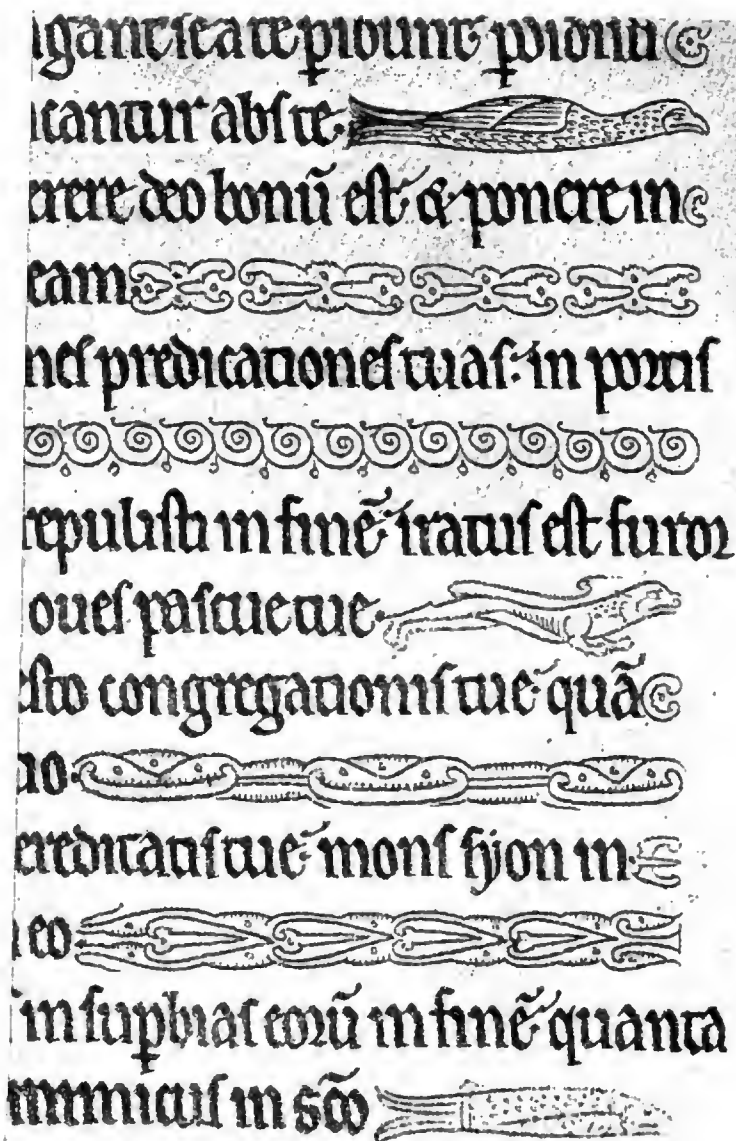 igant se a te pibunt pdidisti
icantur abs te.
erere deo bonū est & ponere in
eam
nes predicationes tuas: in portis
repulisti in finē iratus est furor
oues pascue tue.
esto congregationis tue quā
io.
ereditatis tue mons syon in
eo
in supbias eorū in finē quanta
inimicus in scō